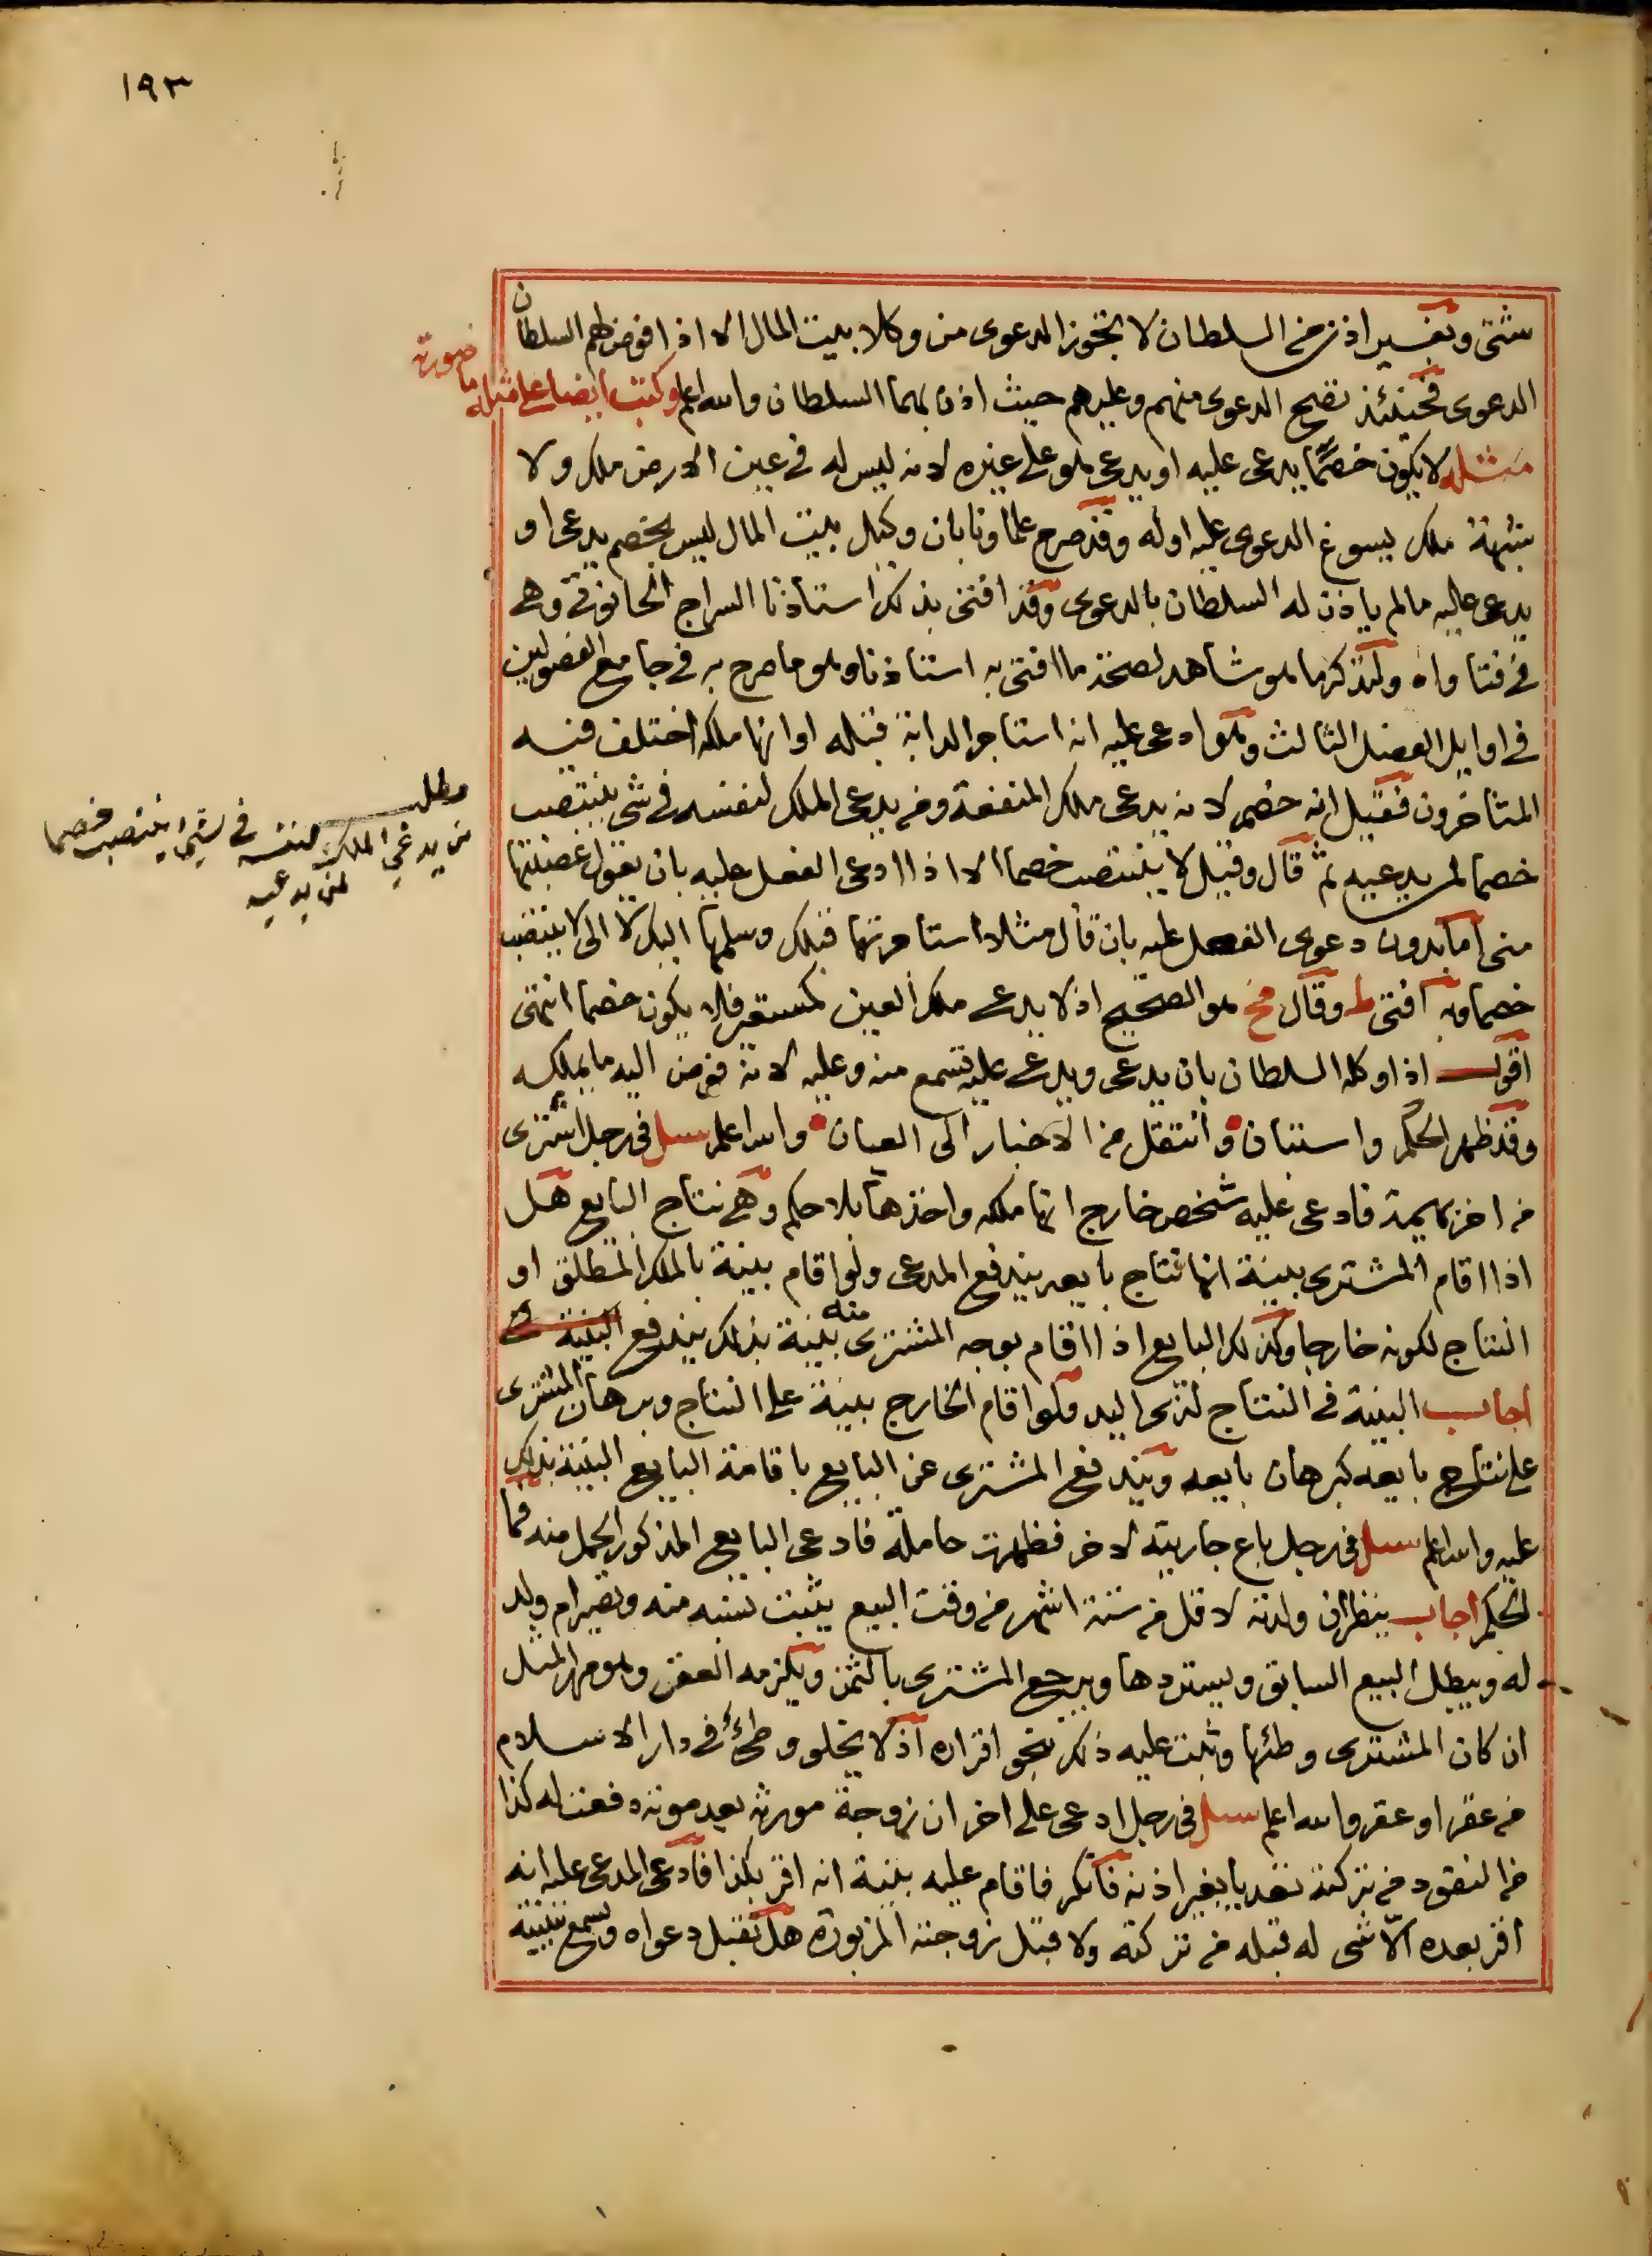 ١٩٣
شتى وبغير اذن من السلطان لا تجوز الدعوى من وكلا بيت المال الا اذا فوض لهم السلطان
الدعوى فحينئذ تصح الدعوى منهم وعليهم حيث اذن بهما السلطان والله اعلم وكتب ايضا على مثله ما صورته
مثله لا يكون خصما يدعى عليه او يدعى هو على غيره لانه ليس له في عين الارض ملك ولا
شبهة ملك يسوغ الدعوى عليه او له وقد صرح علماونا بان وكيل بيت المال ليس بخصم يدعى او
يدعى عليه مالم ياذن له السلطان بالدعوى وقد افتى بذلك استاذنا السراج الحانوتي وهي
في فتاواه ولنذكر ما هو شاهد لصحة ما افتى به استاذنا وهو ما صرح به في جامع الفصولين
في اوايل الفصل الثالث ولو ادعى عليه انه استاجر الدابة قبله او انها ملكه اختلف فيه
المتاخرون فقيل انه خصم لانه يدعى ملك المنفعة ومن يدعى الملك لنفسه في شي ينتصب
خصما لمن يدعيه ثم قال وقيل لا ينتصب خصما الا اذا ادعى الفعل عليه بان يقول غصبتها
مني اما بدون دعوى الفعل عليه بان قال مثلا استاجرتها قبلك وسلمها اليك لا الى لا ينتصب
خصما وبه افتى ط وقال مخ هو الصحيح اذ لا يدعى ملك العين كمستعير فلا يكون خصما انتهى
اقول اذا وكله السلطان بان يدعى ويدعى عليه تسمع منه وعليه لانه فوض اليه ما يملكه
وقد ظهر الحكم واستبان وانتقل من الاخبار الى العيان والله اعلم سىل في رجل اشترى
من اخر بهيمة فادعى عليه شخص خارج انها ملكه واخذها بلا حكم وهي نتاج البايع هل
اذا اقام المشترى بينة انها نتاج بايعه يندفع المدعى ولو اقام بينة بالملك المطلق او
النتاج لكونه خارجا وكذلك البايع اذا اقام بوجه المشترى منه بينة بذلك يندفع البينة في
اجاب البينة في النتاج لذي اليد ولو اقام الخارج بينة على النتاج وبرهان المشترى
على نتاج بايعه كبرهان بايعه ويندفع المشترى عن البايع باقامة البايع البينة بذلك
عليه والله اعلم سىل في رجل باع جاريته لاخر فظهرت حاملة فادعى البايع المذكور الحمل منه فما
الحكم اجاب ينظر ان ولدته لاقل من ستة اشهر من وقت البيع يثبت نسبه منه وتصير ام ولد
له ويبطل البيع السابق ويستردها ويرجع المشترى بالثمن ويلزمه العقر وهو مهر المثل
ان كان المشترى وطئها وثبت عليه ذلك بنحو اقراره اذ لا يخلو وطئ في دار الاسلام
من عقر او عقر والله اعلم سىل في رجل ادعى على اخر ان زوجة مورثه بعد موته دفعت له كذا
من النقود من تركته تعديا بغير اذنه فانكر فاقام عليه بينة انه اقر بكذا فادعى المدعى عليه انه
اقر بعده الا شى له قبله من تركته ولا قبل زوجته المزبورة هل تقبل دعواه وتسمع بينته
مطلب
من يدعي الملك لنفسه في شي ينتصب خصما
لمن يدعيه